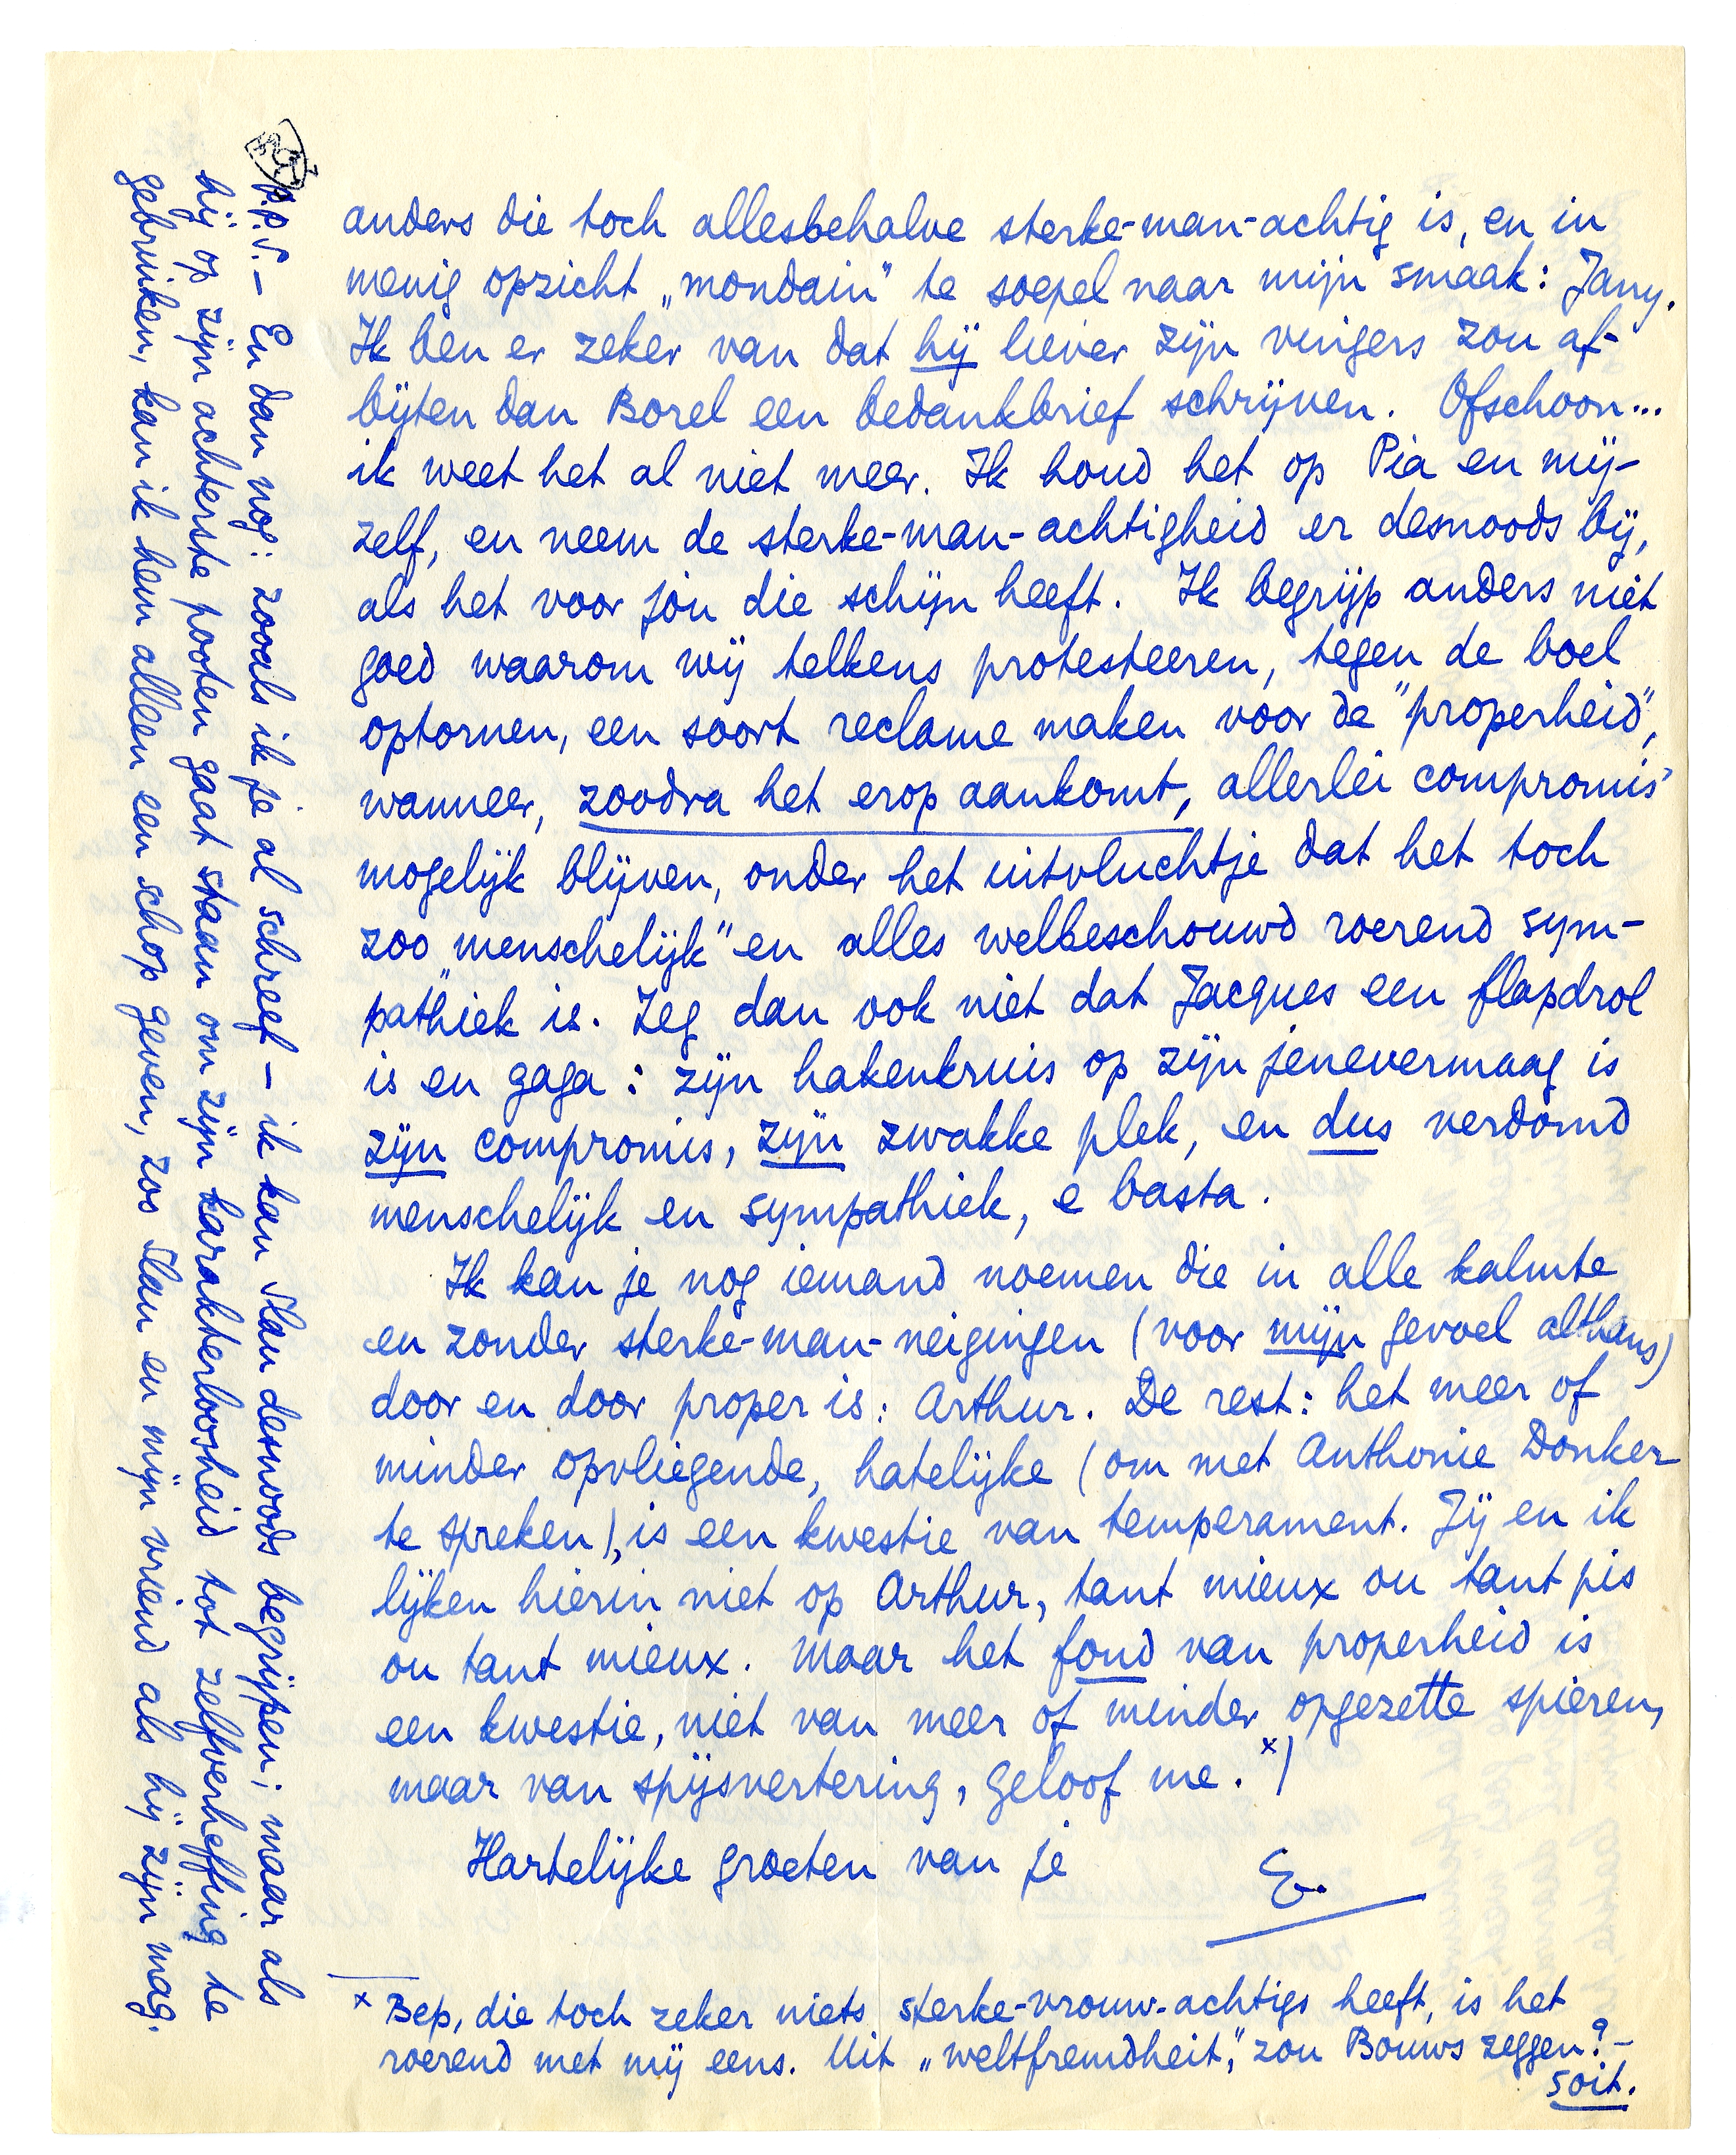 anders die toch allesbehalve sterke-man-achtig is, en in
menig opzicht „mondain” te soepel naar mijn smaak: Jany.
Ik ben er zeker van dat hij liever zijn vingers zou af-
bijten dan Borel een bedankbrief schrijven. Ofschoon...
ik weet het al niet meer. Ik houd het op Pia en mij-
zelf, en neem de sterke-man-achtigheid er desnoods bij,
als het voor jóu die schijn heeft. Ik begrijp anders niet
goed waarom wij telkens protesteeren, tegen de boel
optornen, een soort reclame maken voor de "properheid",
wanneer, zoodra het erop aankomt, allerlei compromis'
mogelijk blijven, onder het uitvluchtje dat het toch
zoo "menschelijk" en alles welbeschouwd roerend sym-
pathiek is. Zeg dan ook niet dat Jacques een flapdrol
is en gaga: zijn hakenkruis op zijn jenevermaag is
zijn compromis, zijn zwakke plek, en dus verdomd
menschelijk en sympathiek, e basta.
Ik kan je nog iemand noemen die in alle kalmte
en zonder sterke-man-neigingen (voor mijn gevoel althans)
door en door proper is: Arthur. De rest: het meer of
minder opvliegende, hatelijke (om met Anthonie Donker
te spreken), is een kwestie van temperament. Jij en ik
lijken hierin niet op Arthur, tant mieux ou tant pis
ou tant mieux. Maar het fond van properheid is
een kwestie, niet van meer of minder opgezette spieren,
maar van spijsvertering, geloof me. x)
Hartelijke groeten van je
E.
x Bep, die toch zeker niets sterke-vrouw-achtigs heeft, is het
roerend met mij eens. Uit „weltfremdheit”, zou Bouws zeggen? –
soit.
P.P.S. – En dan nog: zooals ik je al schreef – ik kan Slau desnoods begrijpen; maar als
hij op zijn achterste pooten gaat staan om zijn karakterloosheid tot zelfverheffing te
gebruiken, kan ik hem alleen een schop geven, zoo Slau en mijn vriend als hij zijn mag.